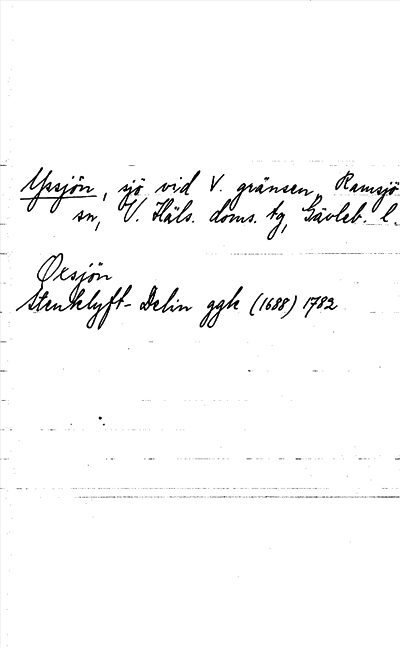 Yxsjön, sjö vid V. gränsen, Ramsjö
sn, V. Häls. doms. tg, Gävleb. l.
Öxsjön
Stenklyft- Delin ggk (1688) 1782